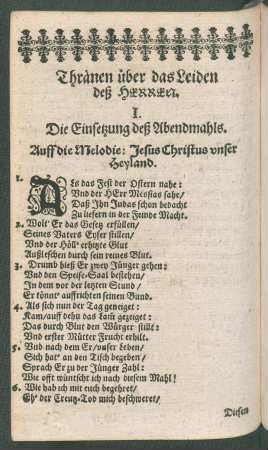 Thränen über das Leiden
deß HERREN.
I.
Die Einsetzung deß Abendmahls.
Auff die Melodie: Jesus Christus vnser
Heyland.
1. ALs das Fest der Ostern nahe:
Vnd der HErr Messias sahe/
Daß Ihn Judas schon bedacht
Zu liefern in der Feinde Macht.
2. Wolt' Er das Gesetz erfüllen/
Seines Vaters Eyfer stillen/
Vnd der Höll' erhitzte Glut
Außleschen durch sein reines Blut.
3. Drumb hieß Er zwey Jünger gehen:
Vnd den Speise-Saal bestehen/
In dem vor der letzten Stund/
Er könnt' auffrichten seinen Bund.
4. Als sich nun der Tag geneiget:
Kam/auff dehn das Lam gezeiget:
Das durch Blut den Würger stillt:
Vnd erster Mütter Frucht erhilt.
5. Vnd nach dem Er/vnser Leben/
Sich hat' an den Tisch begeben/
Sprach Er zu der Jünger Zahl:
Wie offt wüntscht ich nach diesem Mahl!
6. Wie hab ich mit euch begehret/
Eh' der Creutz-Tod mich beschweret/
Diesen